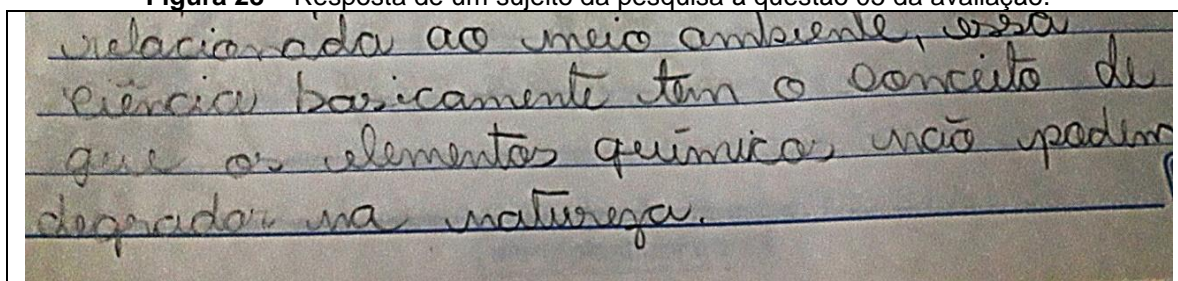 Figura 26 – Resposta de um sujeito da pesquisa à questão 03 da avaliação.
relacionada ao meio ambiente, essa
ciência basicamente tem o conceito de
que os elementos químicos não podem
degradar na natureza.